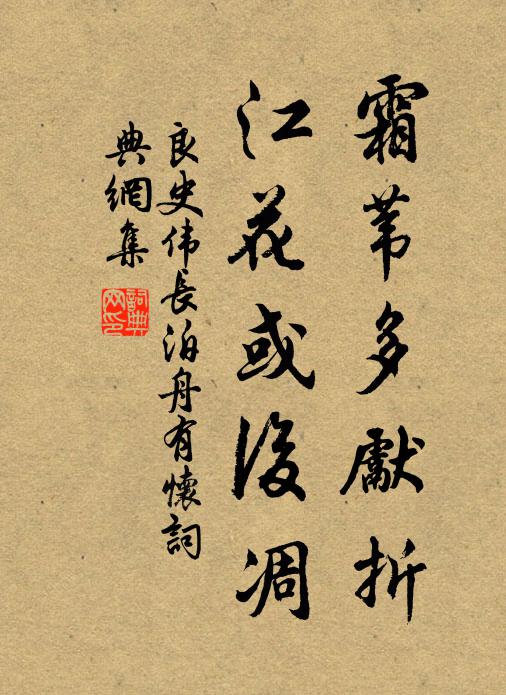 霜苇多獻折
江花或後凋
良史伟長泊舟有懷詞
典網集
詞典
网印